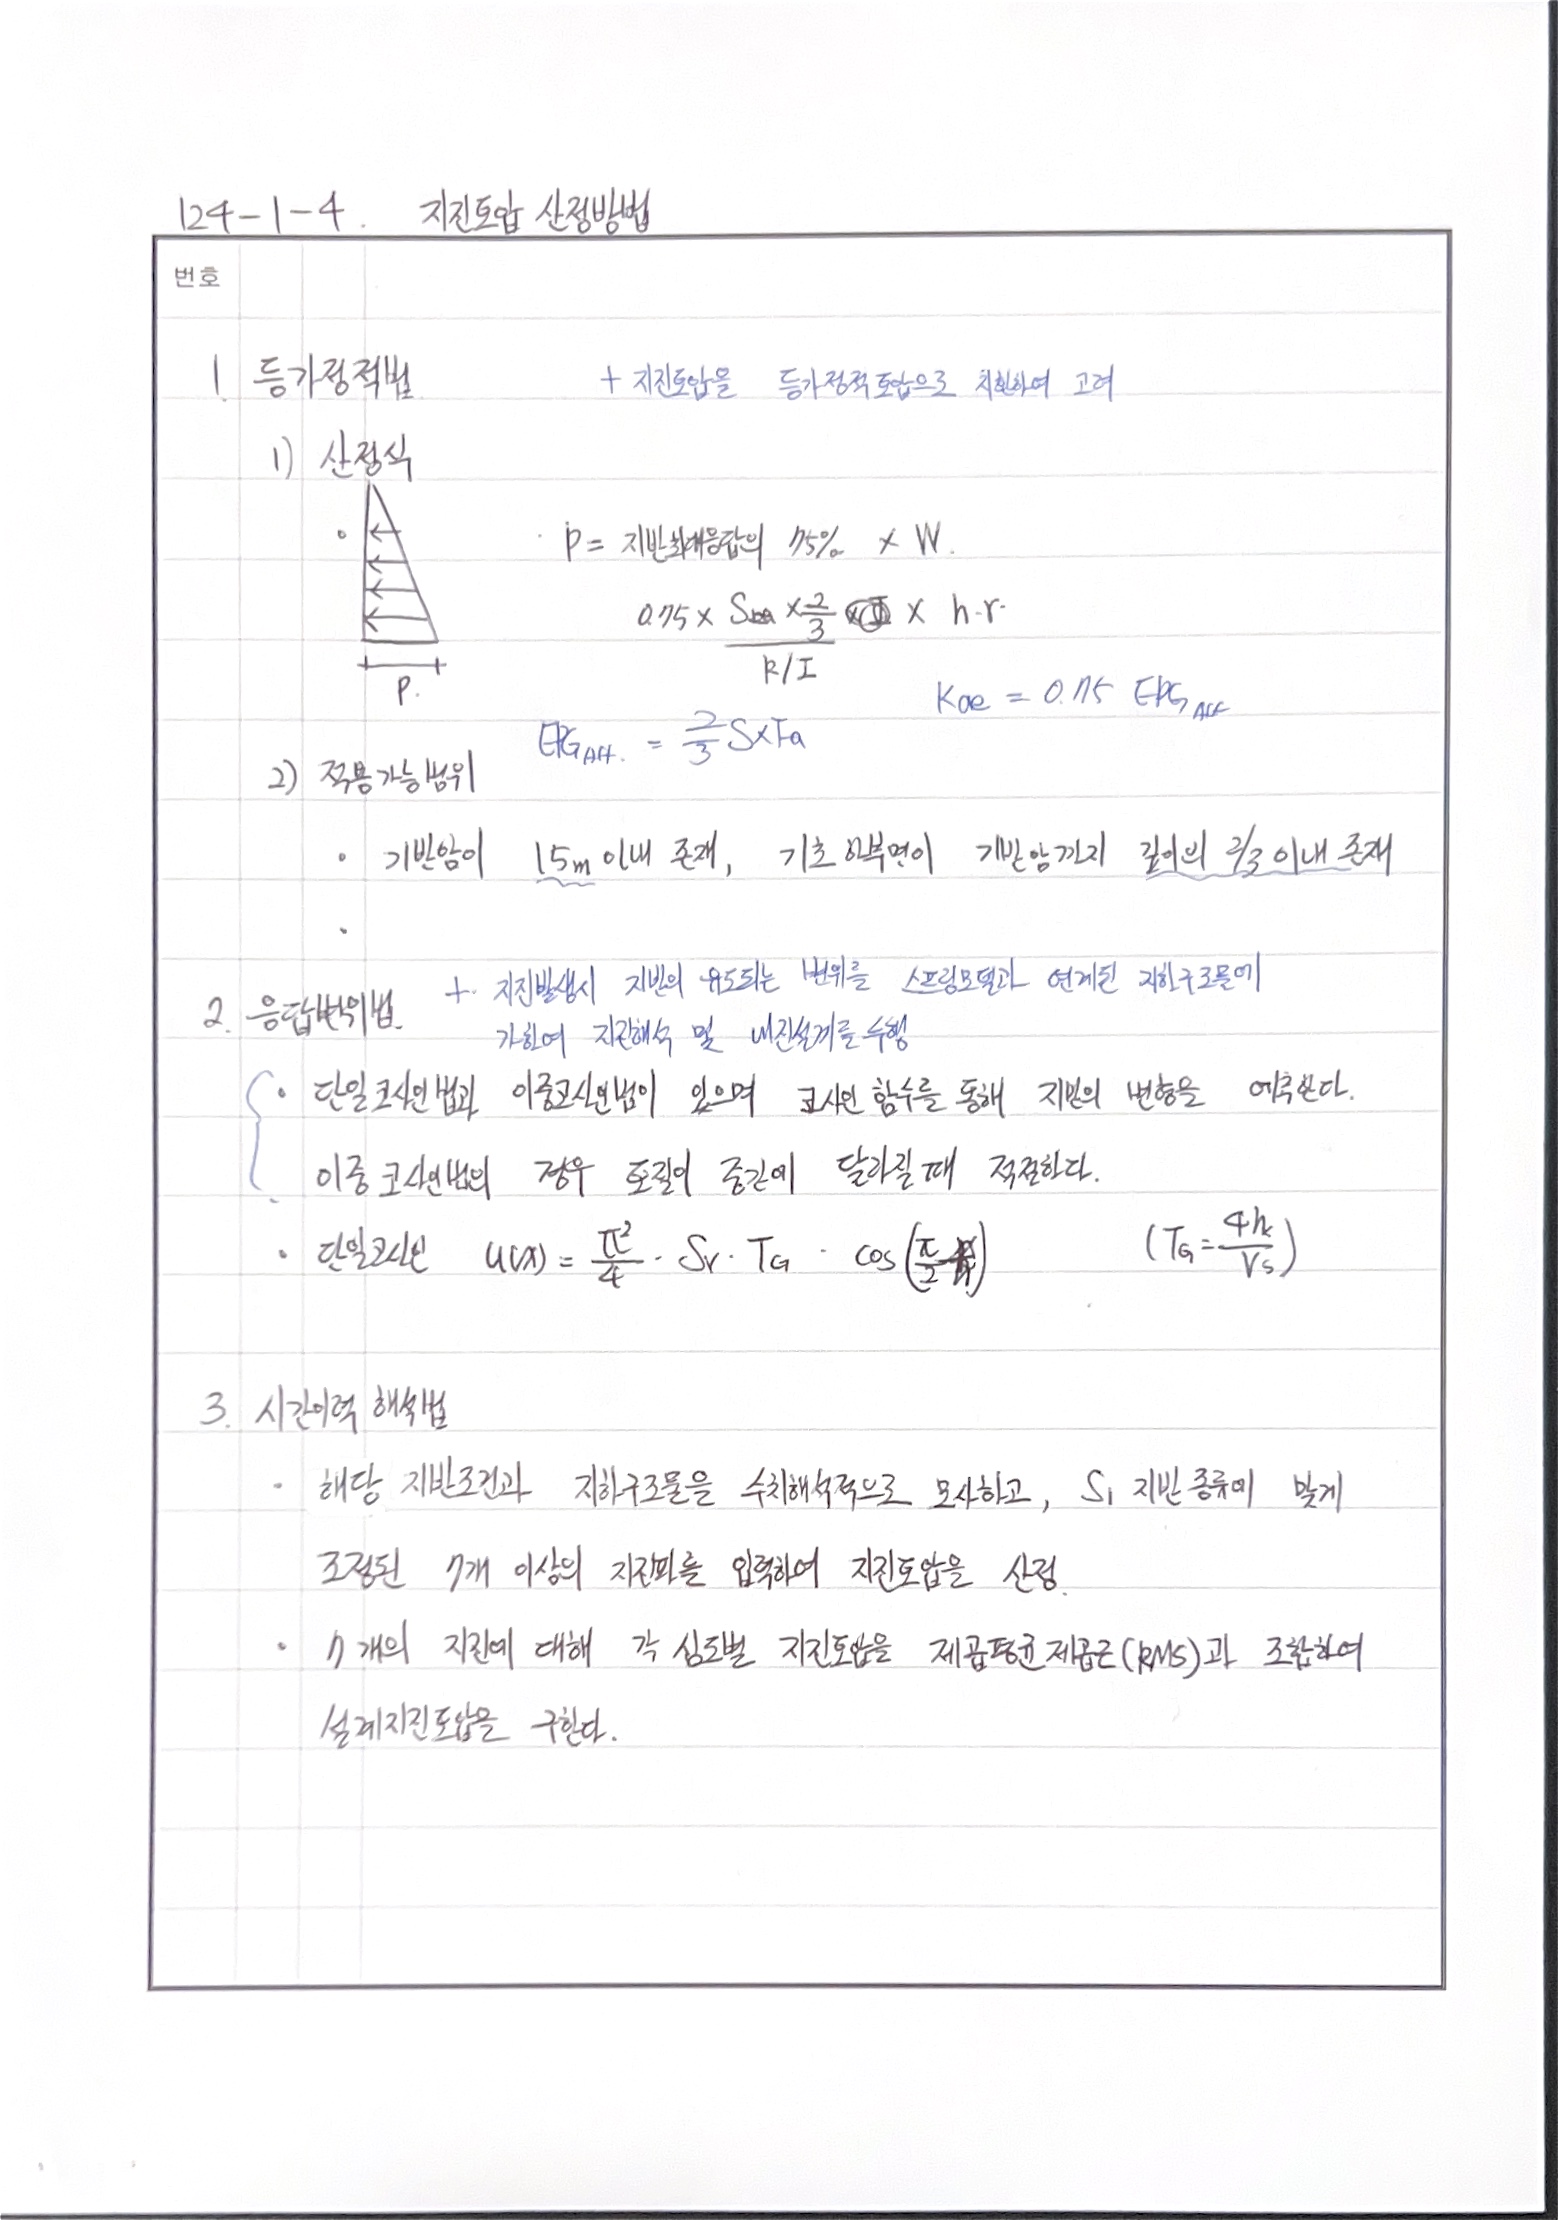 124-1-4. 지진토압 산정방법
번호
1. 등가정적법 + 지진토압을 등가정적토압으로 치환하여 고려
1) 산정식
· P = 지반최대응답의 75% × W.
0.75 × S × 2/3 × h·r.
R/I
P.
Kae = 0.75 EPG Aff
EPG Aff. = 2/3 S×Fa
2) 적용가능범위
· 기반암이 15m 이내 존재, 기초 하부면이 기반암까지 깊이의 2/3 이내 존재
·
+ 지진발생시 지반의 유도되는 변위를 스프링모델과 연계된 지하구조물에
2. 응답변위법.
가하여 지진해석 및 내진설계를 수행
· 단일코사인법과 이중코사인법이 있으며 코사인 함수를 통해 지반의 변형을 예측한다.
이중코사인법의 경우 토질이 중간에 달라질 때 적절하다.
· 단일코사인 U(x) = π²/4 · Sv · TG · cos(π/2 ) (TG = 4h/Vs)
3. 시간이력 해석법
· 해당 지반조건과 지하구조물을 수치해석적으로 모사하고, S1 지반종류에 맞게
조정된 7개 이상의 지진파를 입력하여 지진토압을 산정.
· 7개의 지진에 대해 각 심도별 지진토압을 제곱평균제곱근(RMS)과 조합하여
설계지진토압을 구한다.